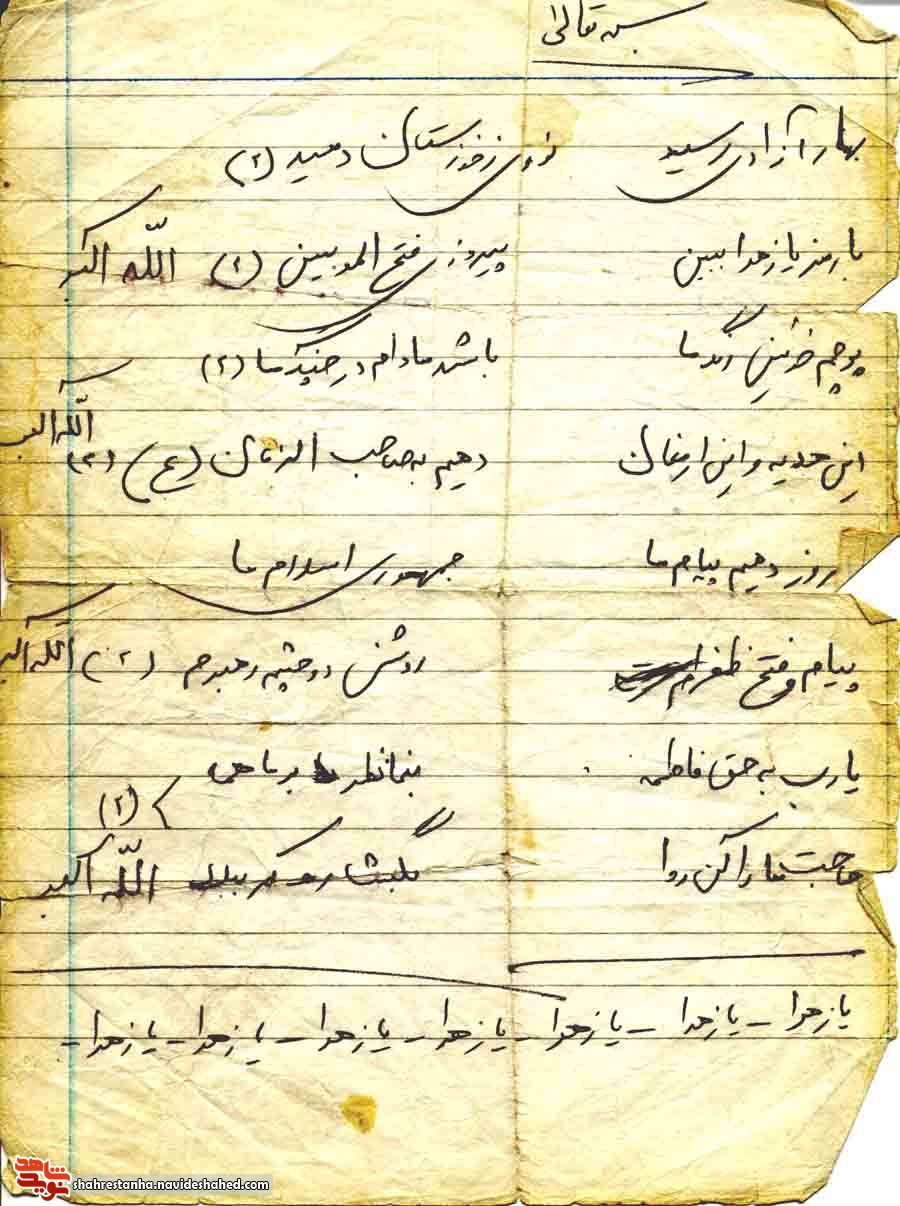 بسمه تعالی
بهار آزادی رسید نوری ز خوزستان دمید (۲)
با رمز یا زهرا ببین پیروزی فتح المبین (۲) الله اکبر
پرچم خونین رنگ ما باشد مادام در چنگ ما (۲)
الله اکبر
این هدیه و این ارمغان دهیم به صاحب الزمان (عج) (۲)
روز دهیم پیام ما جمهوری اسلام ما
پیام و فتح ظفرم روشن دو چشم رهبرم (۲) الله اکبر
یارب به حق فاطمه بنما نظر بر ما همی
(۲)
حاجت ما را کن روا بگشا ره کربلا الله اکبر
یا زهرا - یا زهرا - یا زهرا - یا زهرا - یا زهرا - یا زهرا - یا زهرا -
شاهد نوید
shahrestanha.navideshahed.com